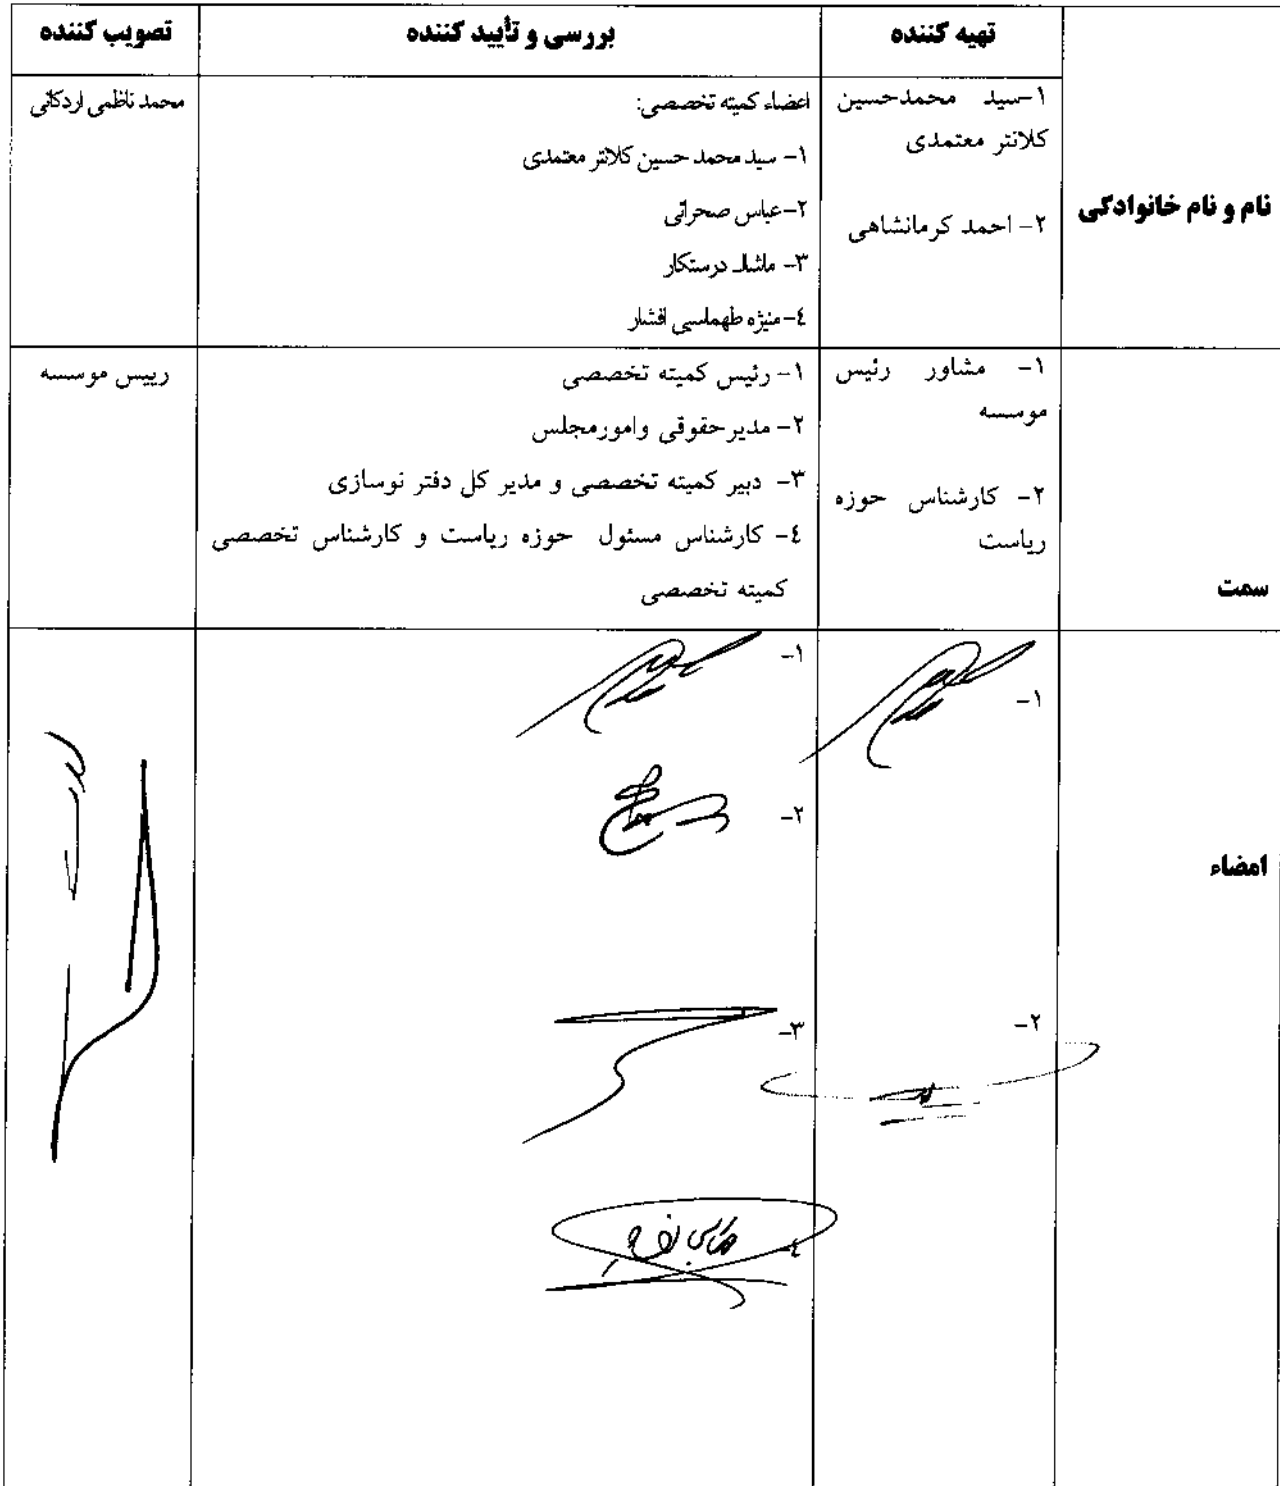 تهیه کننده
بررسی و تأیید کننده
تصویب کننده
نام و نام خانوادگی
۱-سید محمدحسین
کلانتر معتمدی
۲- احمد کرمانشاهی
اعضاء کمیته تخصصی:
۱- سید محمد حسین کلانتر معتمدی
۲-عباس صحرائی
۳- ماشالـ درستکار
٤-منیژه طهماسبی افشار
محمد ناظمی اردکانی
سمت
۱- مشاور رئیس
موسسه
۲- کارشناس حوزه
ریاست
۱- رئیس کمیته تخصصی
۲- مدیرحقوقی وامورمجلس
۳- دبیر کمیته تخصصی و مدیر کل دفتر نوسازی
٤- کارشناس مسئول حوزه ریاست و کارشناس تخصصی
کمیته تخصصی
رییس موسسه
امضاء
۱-
۲-
۱-
۲-
۳-
٤-